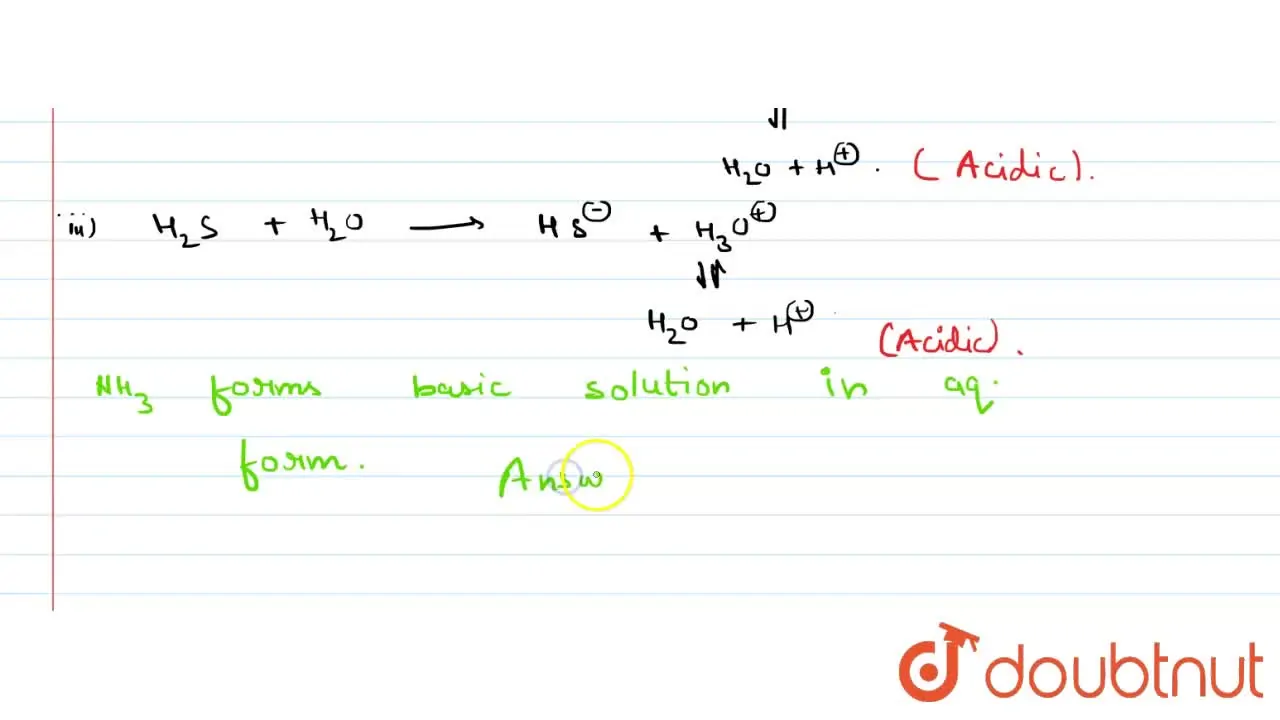 ⇓
H₂O + H⊕. (Acidic).
iii) H₂S + H₂O ⟶ HS⊖ + H₃O⊕
⇓⇑
H₂O + H⊕
(Acidic).
NH₃ forms basic solution in aq.
form. Answ
doubtnut